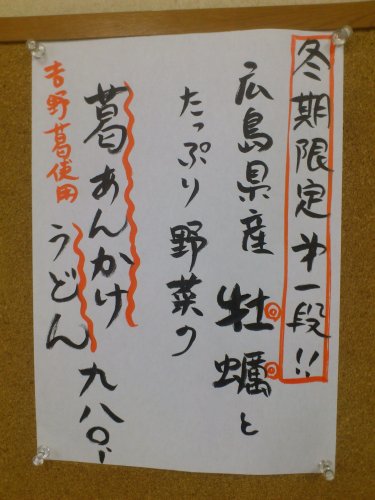 冬期限定第一段!!
広島県産牡蠣と
たっぷり野菜の
葛あんかけ
うどん九八〇-
吉野葛使用